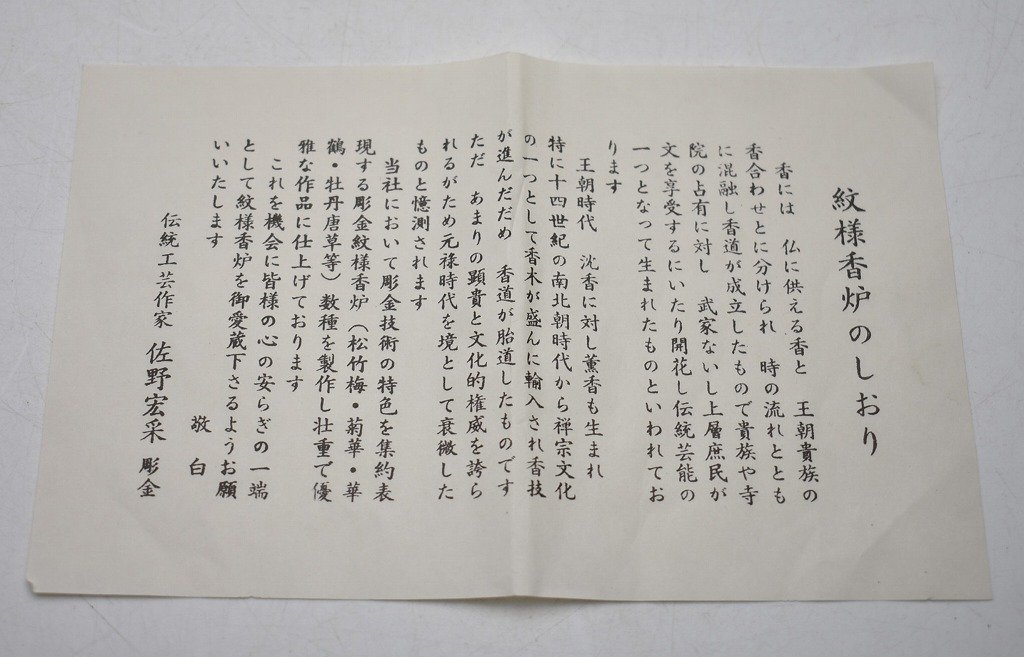 紋様香炉のしおり
香には　仏に供える香と　王朝貴族の
香合わせとに分けられ　時の流れととも
に混融し香道が成立したもので貴族や寺
院の占有に対し　武家ないし上層庶民が
文を享受するにいたり開花し伝統芸能の
一つとなって生まれたものといわれてお
ります
王朝時代　沈香に対し薫香も生まれ
特に十四世紀の南北朝時代から禅宗文化
の一つとして香木が盛んに輸入され香技
が進んだだめ　香道が胎道したものです
ただ　あまりの顕貴と文化的権威を誇ら
れるがため元禄時代を境として衰微した
ものと憶測されます
当社において彫金技術の特色を集約表
現する彫金紋様香炉（松竹梅・菊華・華
鶴・牡丹唐草等）数種を製作し壮重で優
雅な作品に仕上げております
これを機会に皆様の心の安らぎの一端
として紋様香炉を御愛蔵下さるようお願
いいたします
敬　白
伝統工芸作家　佐野宏采　彫金